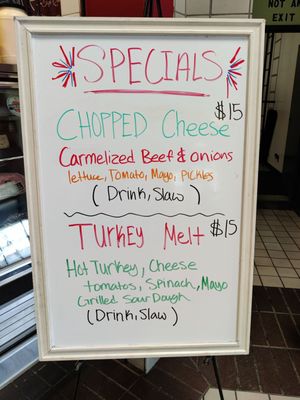 NOT AN
EXIT
SPECIALS
$15
CHOPPED Cheese
Carmelized Beef & onions
lettuce, Tomato, Mayo, Pickles
(Drink, Slaw)
Turkey Melt $15
Hot Turkey, Cheese
tomatos, Spinach, Mayo
Grilled SourDough
(Drink, Slaw)